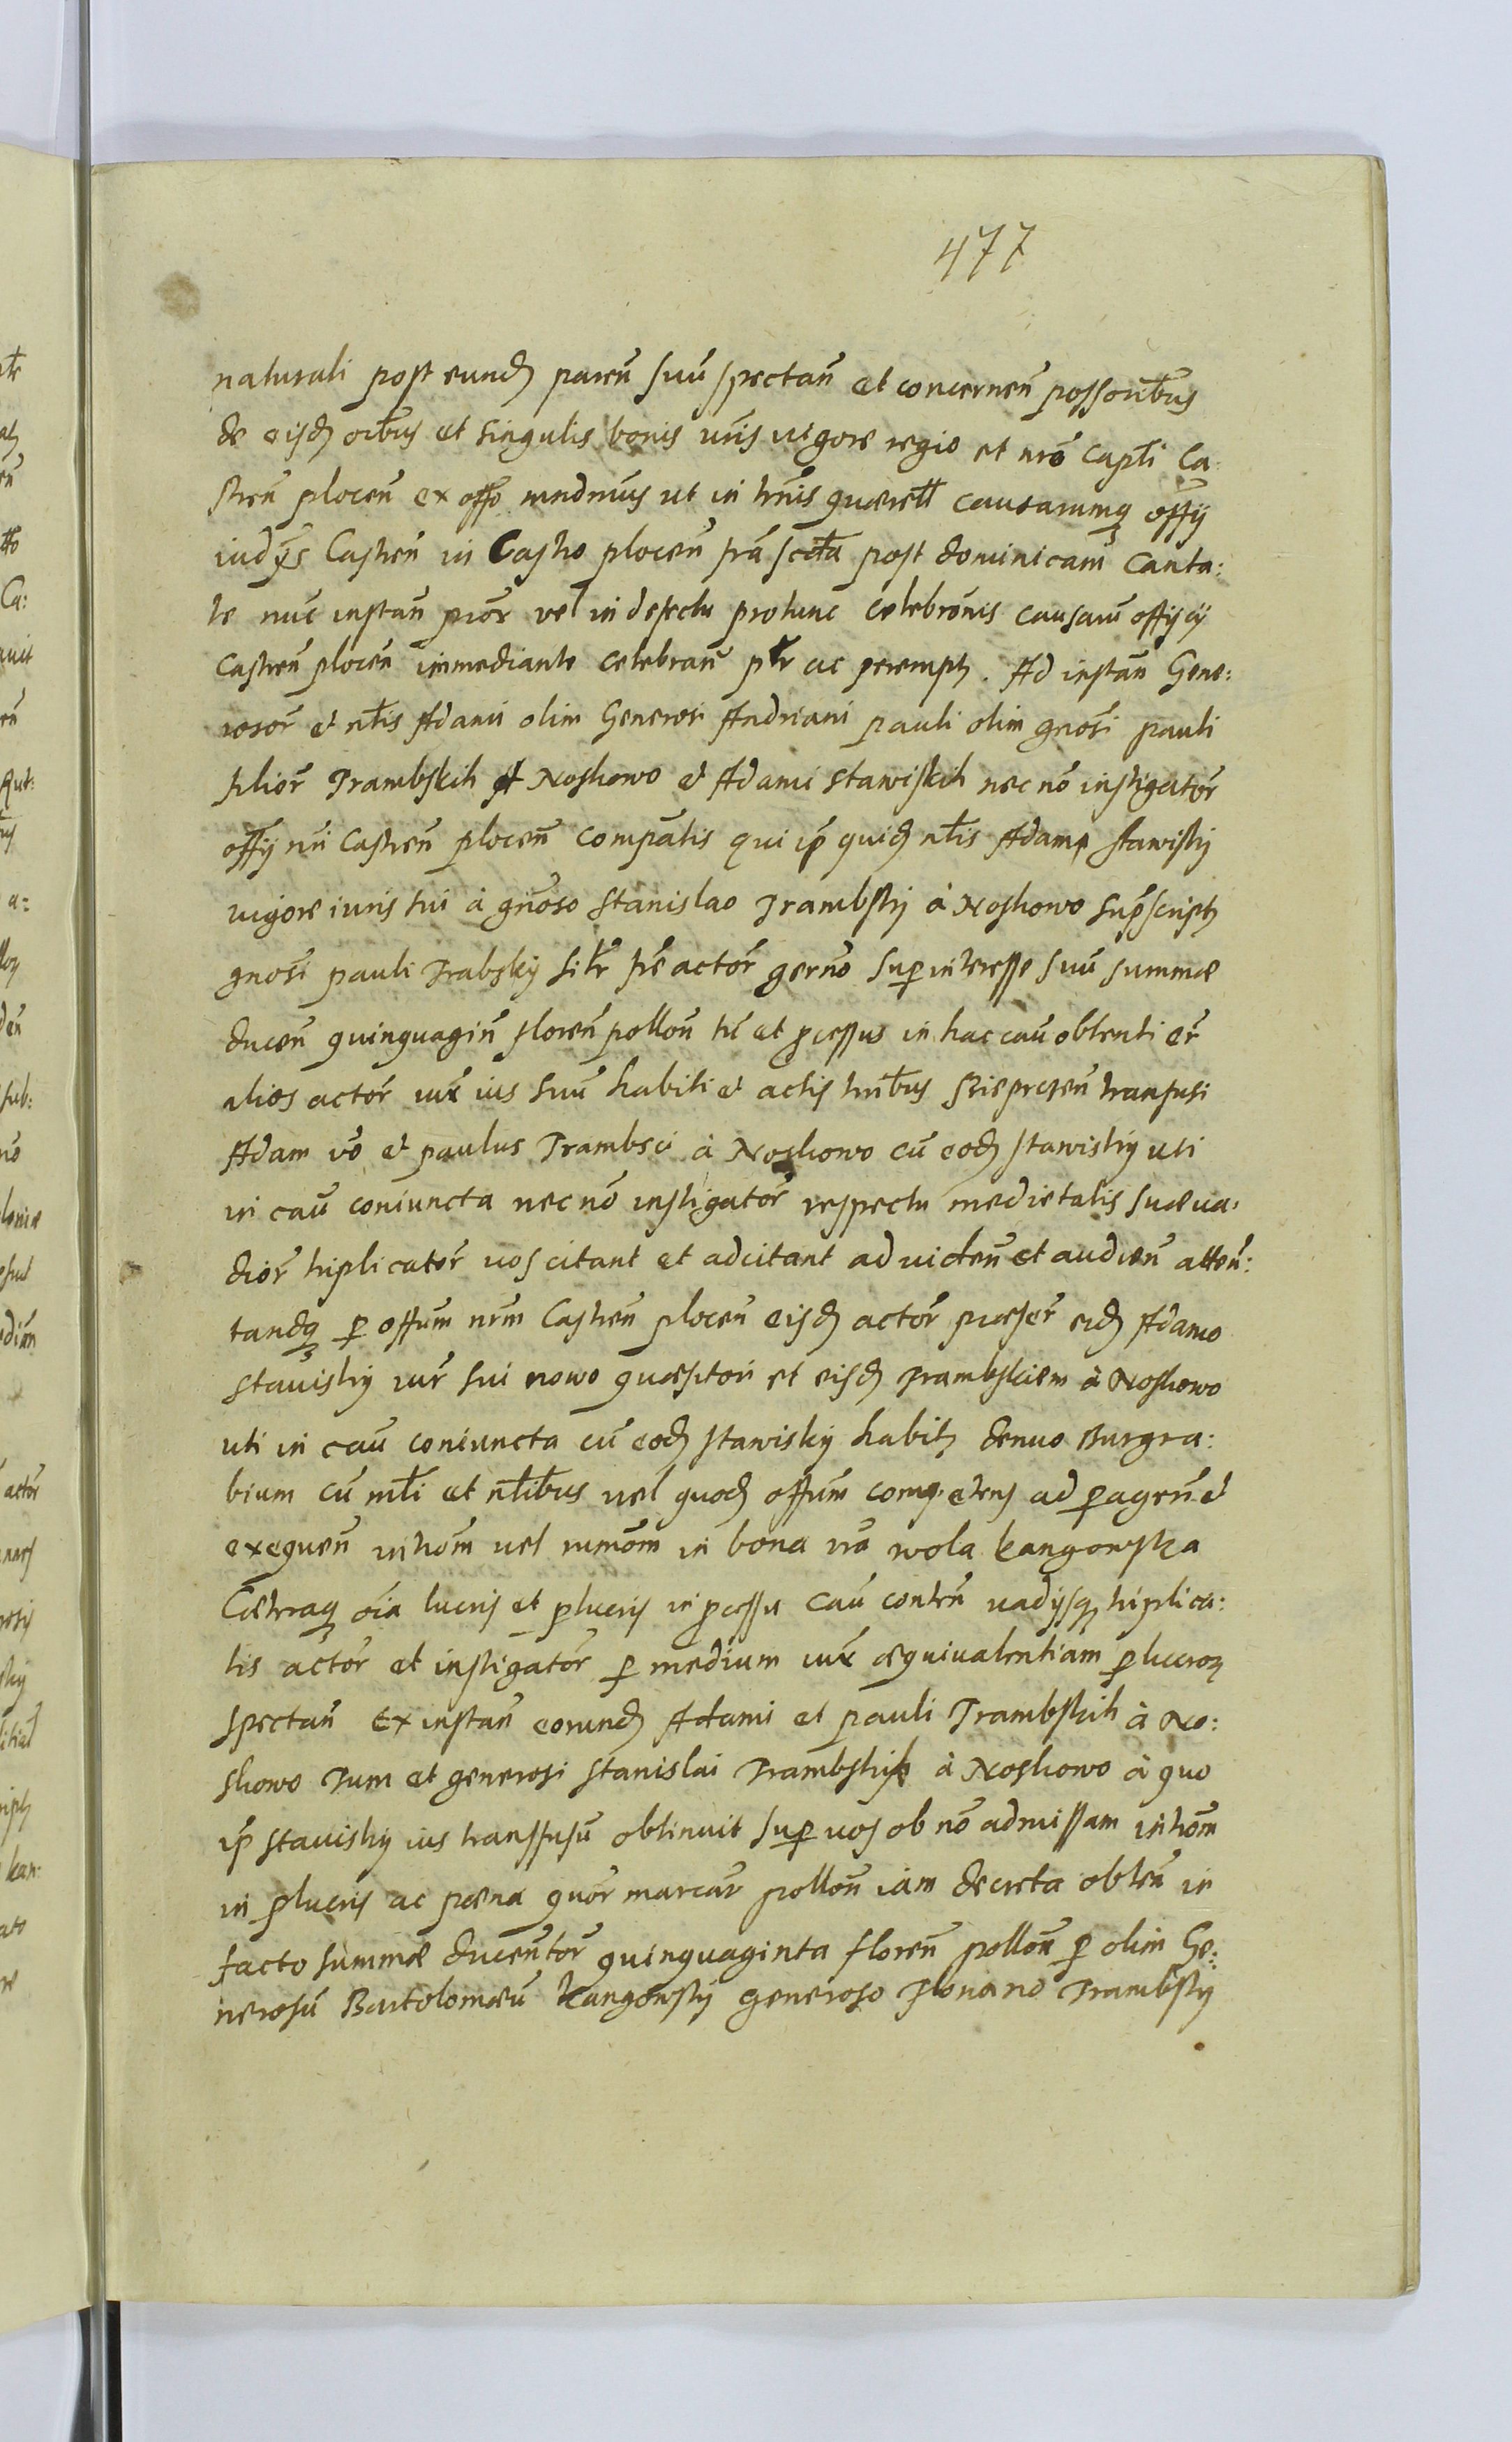 477
naturali post eund paren̄ suū spectan̄ et concernen̄ possoribus
de eisd oibus et singulis bonis vris vigore regio et nro Capli Ca:
stren̄ plocen̄ ex offo mndmus ut in trnis querell causarumq offy
iudys Castren̄ in Castro plocen̄ fra scda post dominicam Canta:
te nūc instan̄ prōr vel in defectu protunc celebronis causarū offy cy
Castren̄ plocen̄ immediante celebran̄ ptr ac perempt. Ad instan̄ Gene:
rosor et nblis Adami olim Generosi Andriani pauli olim gnosi pauli
filior Trambskih à Noskowo et Adami Stawiskih nec nō instigator
offy nri Castren̄ plocen̄ comparatis qui ip quid nblis Adamo Stawisky
vigore iuris sui à gnoso Stanislao Trambsky à Noskowo supscript
gnosi pauli Trabsky silr fre actor germo sup interesse suū summæ
ducen̄ quinquagin̄ floren̄ pollon̄ tū et pcessus in hac cau obtenti er
alios actor iux ius suū habiti et actis trnibus Sieprcen̄ transfusi
Adam vō et paulus Trambsci à Noskowo cū eod Stawisky uti
in cau coniuncta nec nō instigator respectu medietatis suæ va:
dior triplicator vos citant et adcitant ad viden̄ et audien̄ atten̄:
tandq p offum nrm Castren̄ plocen̄ eisd actor præser eid Adamo
Stauisky iur sui nowo quæsitori et eisd Trambskiem à Noskowo
uti in cau coniuncta cū eod Stawisky habit denuo Burgra:
bium cū mli et nblibus vel quod offum competens ad pagen̄ et
exequen̄ introm vel rumom in bona vra wola kangowska
Cætraq oia lucris et plucris in pcessu cau conten̄ vadysq triplica:
tis actor et instigator p medium iux æquivalentiam plucror
spectan̄ Ex instan̄ eorund Adami et pauli Trambskih à No:
skowo Tum et generosi Stanislai Trambskih à Noskowo à quo
ip Stauisky ius transfusū obtinuit sup vos ob nō admissam introm
in plucris ac pœna quor marcar pollon̄ iam decreta obten̄ in
facto summæ ducentor quinquaginta floren̄ pollon̄ p olim Ge:
nerosū Bartolomæū kangowsky generoso Floriano Trambsky